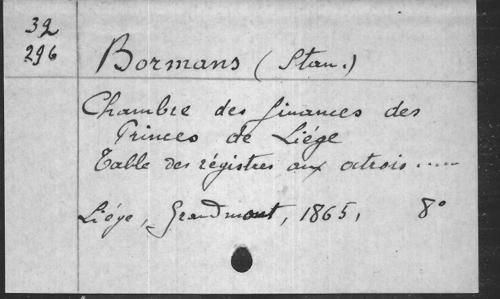 32
296
Bormans (Stan.)
Chambre des finances des
Princes de Liége
Table des régistres aux octrois .....
Liége, Grandmont, 1865, 8°